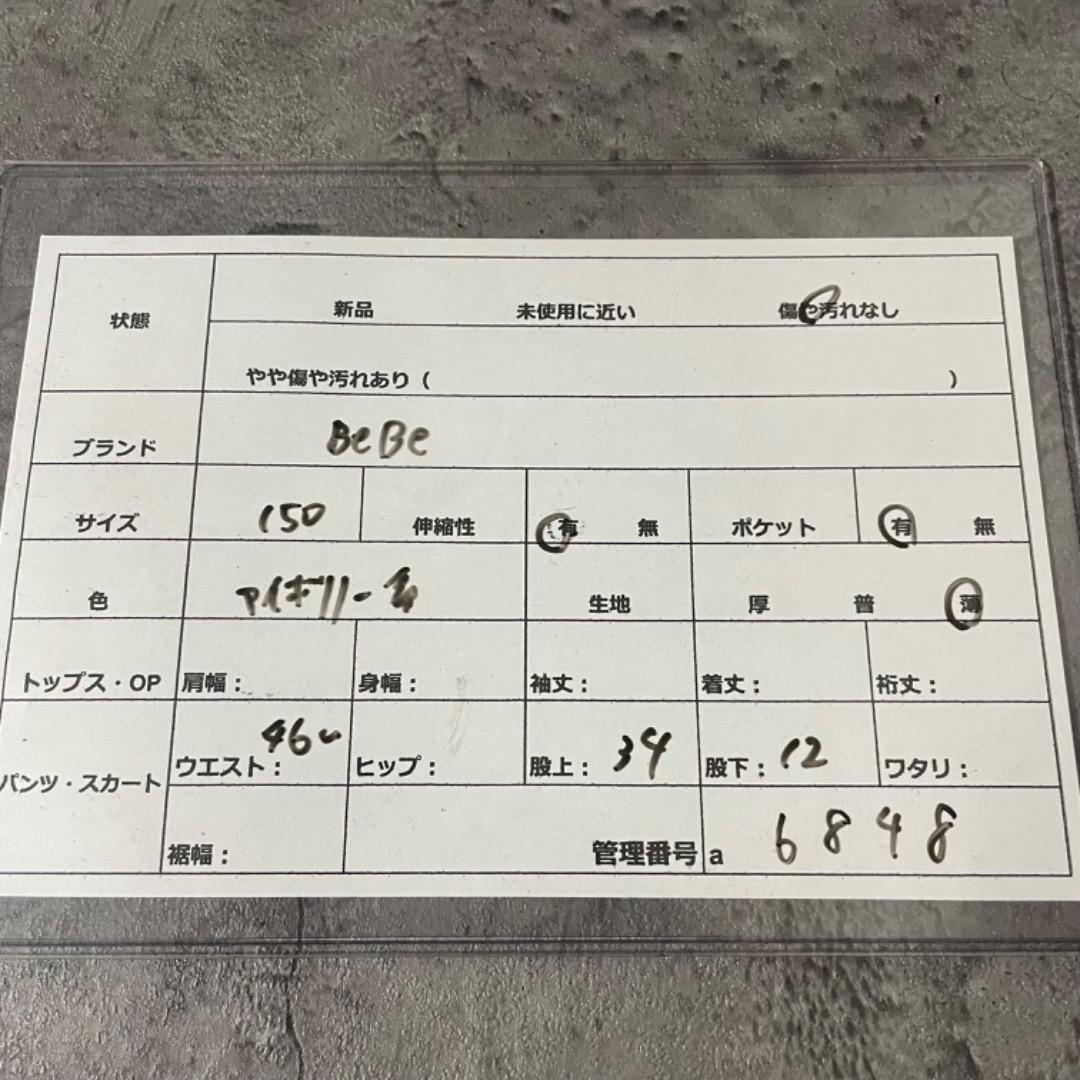 状態 新品 未使用に近い 傷や汚れなし
やや傷や汚れあり ( )
ブランド BeBe
サイズ 150 伸縮性 有 無 ポケット 有 無
色 アイボリー 生地 厚 普 薄
トップス・OP 肩幅: 身幅: 袖丈: 着丈: 裄丈:
パンツ・スカート ウエスト: 46~ ヒップ: 股上: 34 股下: 12 ワタリ:
裾幅: 管理番号 a 6848